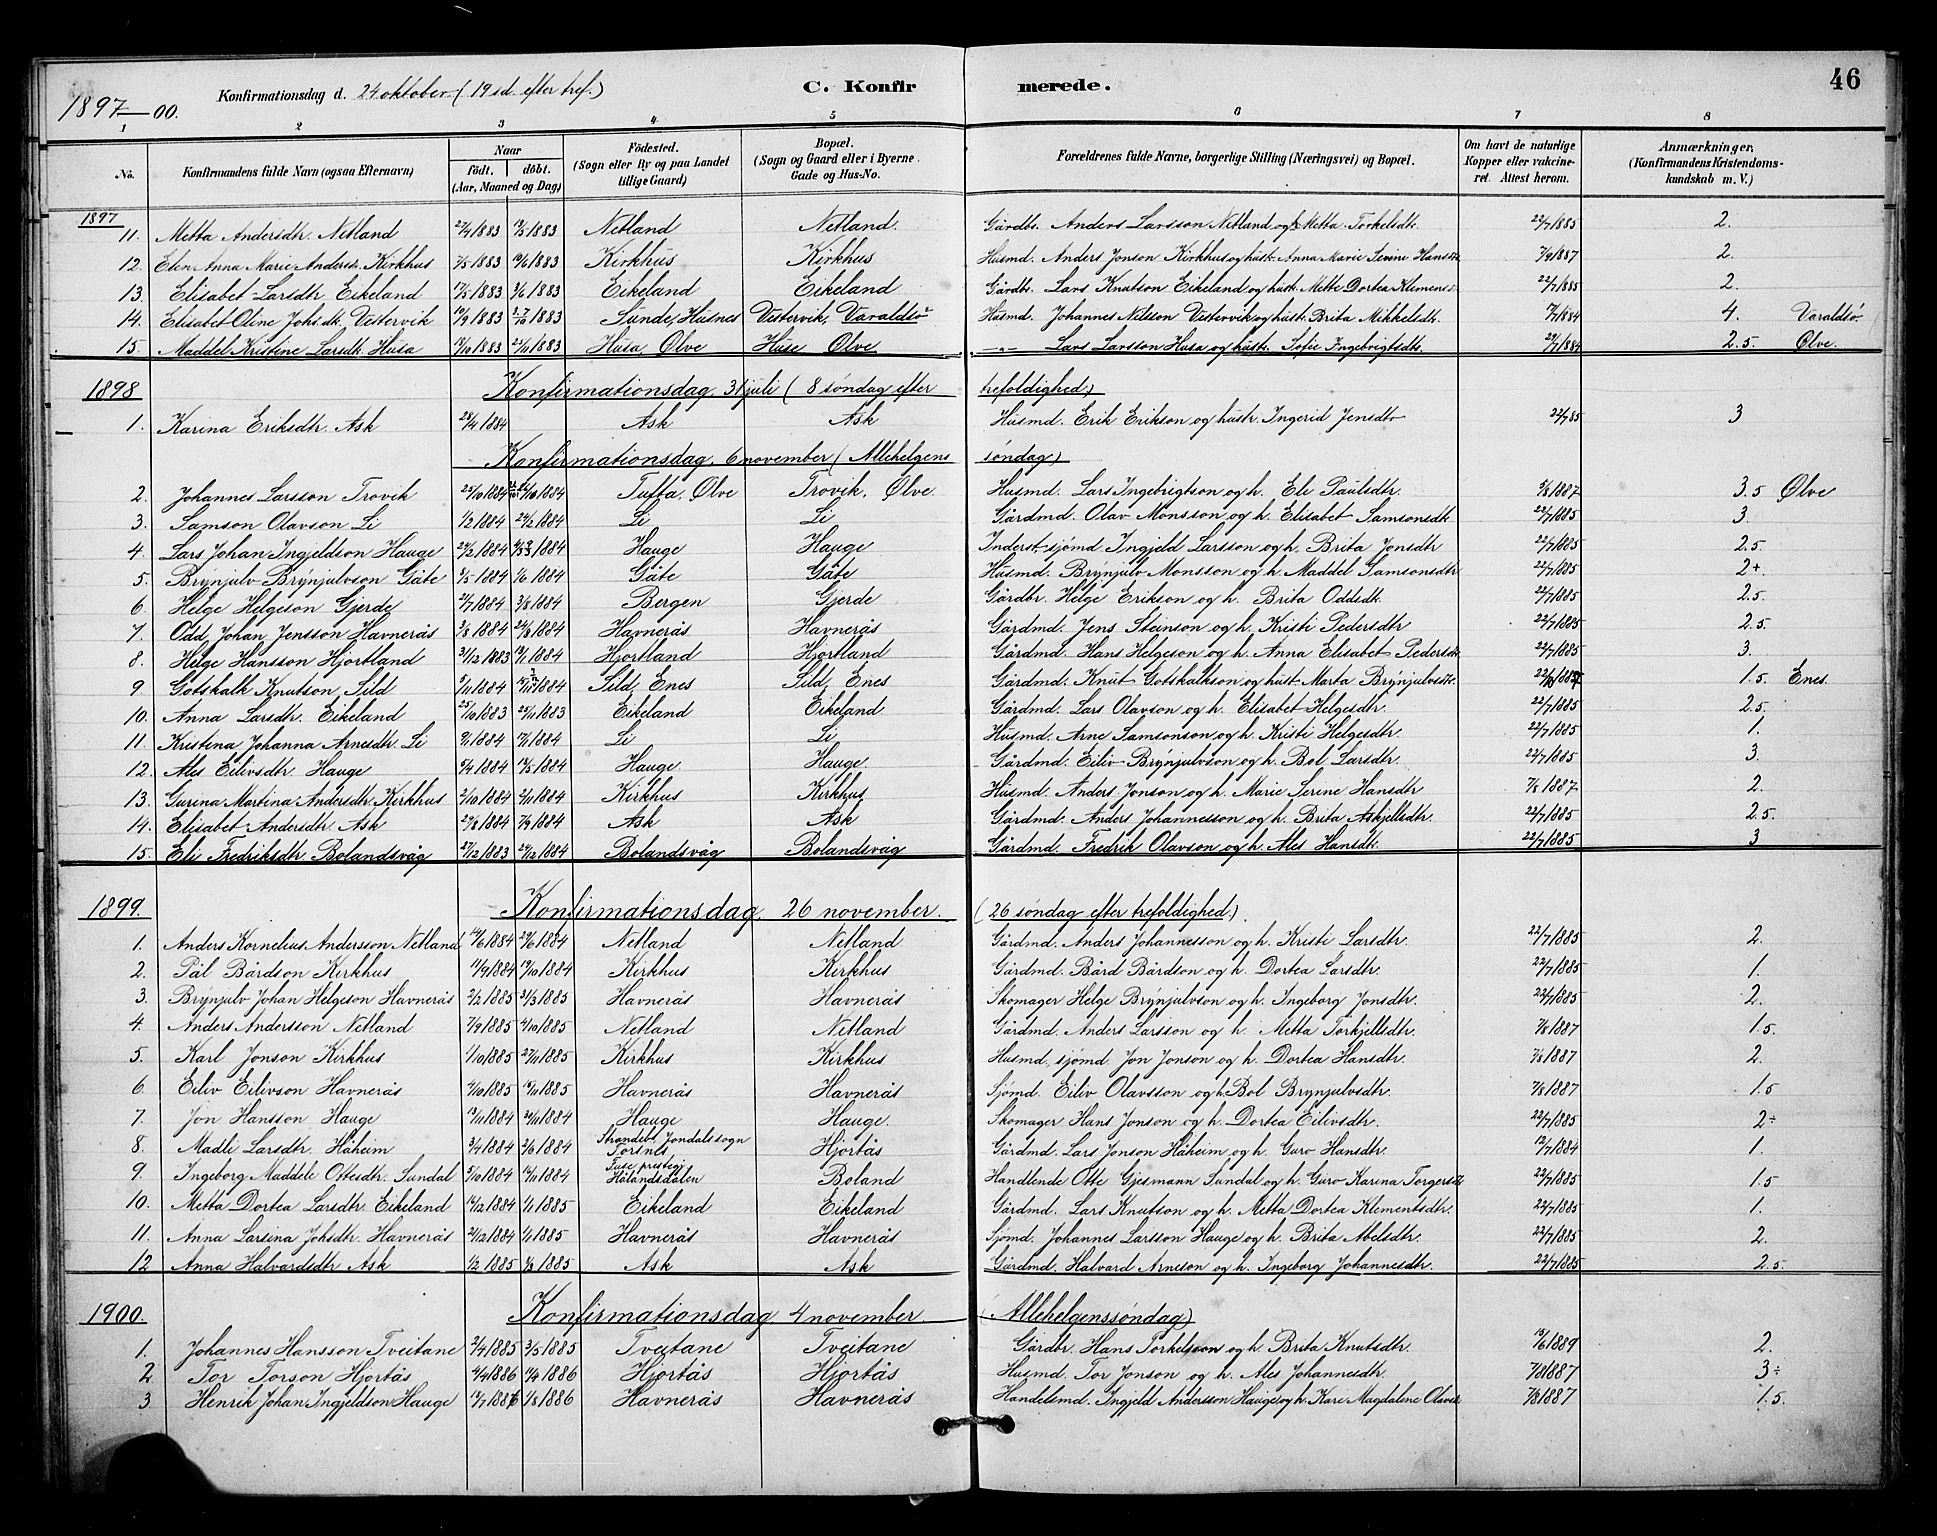 1897-00. Konfirmationsdag d. 24 oktober (19 sd. efter tref.) C. Konfirmerede. 46
1 2 3 4 5 6 7 8
No. Konfirmandens fulde Navn (ogsaa Efternavn) Naar født, døbt. (Aar, Maaned og Dag) Födested. (Sogn eller By og paa Landet tillige Gaard) Bopæl. (Sogn og Gaard eller i Byerne Gade og Hus-No. Forældrenes fulde Navne, borgerlige Stilling (Næringsvei) og Bopæl. Om havt de naturlige Kopper eller vakcineret. Attest herom. Anmærkninger, (Konfirmandens Kristendomskundskab m. V.)
1897
11. Metta Andersdtr. Netland 27/4 1883 13/5 1883 Netland Netland. Gårdbr. Anders Larsson Netland og h. Metta Torkelsdtr. 22/7 1885 2.
12. Elen Anna Marie Andersdt. Kirkhus 7/5 1883 10/6 1883 Kirkhus Kirkhus Husmd. Anders Jonson Kirkhus og hust. Anna Marie Serine Hansdt. 7/9 1887 2.
13. Elisabet Larsdtr Eikeland 17/5 1883 3/6 1883 Eikeland Eikeland Gårdbr. Lars Knutson Eikeland og hust. Mette Dortea Klemens 22/7 1885 2.
14. Elisabet Oline Johs.dt. Vestervik 10/9 1883 1883 Sunde, Husnes Vestervik, Varaldsö Husmd. Johannes Nilsson Vestervik og hust. Brita Mikkelsdt. 1884 4. Varaldsö.
15. Maddel Kristine Larsdt. Husa 1883 1883 Husa, Ølve Huse Ølve -"- Lars Larsson Husa og hust. Sofie Ingebrigtsdtr. 1884 2.5. Ølve.
1898 Konfirmationsdag 31 juli (8 søndag efter trefoldighed)
1. Karina Eriksdtr. Ask 28/4 1884 Ask Ask Husmd. Erik Erikson og hustr. Ingerid Jensdtr 22/7 85 3
Konfirmationsdag. 6 november (Allehelgens søndag)
2. Johannes Larsson Trovik 25/10 1884 1884 Tufta, Ølve Trovik, Ølve Husmd. Lars Ingebrigtson og h. Eli Paulsdtr. 1887 3.5 Ølve
3. Samson Olavson Li 1/2 1884 24/2 1884 Li Li Gårdmd. Olav Monsson og h. Elisabet Samsonsdt. 22/7 1885 3.
4. Lars Johan Ingjeldson Hauge 1884 1884 Hauge Hauge Inderst sjömd Ingjeld Larsson og h. Brita Jonsdtr 22/7 1885 2.5.
5. Brynjulv Brynjulvson Gåte 1884 1/6 1884 Gåte Gåte Husmd. Brynjulv Monsson og h. Maddel Samsonsdtr 22/7 1885 2+.
6. Helge Helgeson Gjerde 1884 3/8 1884 Bergen Gjerde Gårdbr. Helge Erikson og h. Brita Oddsdt. 22/7 1885 2.5.
7. Odd Johan Jensson Havnerås 3/8 1884 24/8 1884 Havnerås Havnerås Gårdmd. Jens Steinson og h. Kristi Pedersdtr 22/7 1885 2.5.
8. Helge Hansson Hjortland 31/12 1883 13/1 1884 Hjortland Hjortland Gårdmd. Hans Helgeson og h. Anna Elisabet Pedersdt. 22/7 1885 3.
9 Gotskalk Knutson Sild 1884 1884 Sild, Enes Sild, Enes Gårdmd. Knut Gotskalkson og hust. Marta Brynjulvsdt. 1.5. Enes.
10. Anna Larsdtr. Eikeland 25/10 1883 25/11 1883 Eikeland Eikeland Gårdmd. Lars Olavson og h. Elisabet Helgesdtr. 22/7 1885 2.5.
11. Kristina Johanna Arnesdtr. Li 1884 1884 Li Li Husmd. Arne Samsonson og h. Kristi Helgesdtr. 22/7 1885 1.
12. Ales Eilivsdtr. Hauge 1884 1884 Hauge Hauge Gårdmd. Eiliv Brynjulvson og h. Bol Larsdtr. 22/7 1885 3
13. Gurina Martina Andersdtr. Kirkhus 2/10 1884 2/11 1884 Kirkhus Kirkhus Husmd. Anders Jonson og h. Marie Serine Hansdtr 7/8 1887 2.
14. Elisabet Andersdtr. Ask 29/8 1884 7/9 1884 Ask Ask Gårdmd. Anders Johannesson og h. Brita Askjellsdtr. 22/7 1885 2.5.
15. Eli Fredriksdtr Bolandsvåg 27/12 1883 1884 Bolandsvåg Bolandsvåg Gårdmd. Fredrik Olavson og h. Ales Hansdt. 22/7 1885 3
1899. Konfirmationsdag 26 november. (26 søndag efter trefoldighed.)
1. Anders Kornelius Andersson Netland 1884 29/6 1884 Netland Netland. Gårdmd. Anders Johannesson og h. Kristi Larsdtr. 22/7 1885 2.
2. Pål Bårdson Kirkhus 11/9 1884 19/10 1884 Kirkhus Kirkhus Gårdmd. Bård Bårdson og h. Dortea Larsdtr. 22/7 1885 1.
3. Brynjulv Johan Helgeson Havnerås 2/2 1885 31/3 1885 Havnerås Havnerås Skomager Helge Brynjulvson og h. Ingeborg Jonsdtr. 22/7 1885 2.
4. Anders Andersson Netland 7/9 1885 4/10 1885 Netland Netland Gårdmd. Anders Larsson og h. Metta Torkjellsdtr. 7/8 1887 1.5.
5. Karl Jonson Kirkhus 1/10 1885 1885 Kirkhus Kirkhus Husmd, sjömd Jon Jonson og h. Dortea Hansdtr. 7/8 1887 2.
6. Eiliv Eilivson Havnerås 1885 1885 Havnerås Havnerås Sjömd. Eiliv Olavsson og h. Bol Brynjulvsdtr. 7/8 1887 1.5
7. Jon Hansson Hauge 13/11 1884 1884 Hauge Hauge. Skomager Hans Jonson og h. Dortea Eilivsdtr. 22/7 1885 2÷
8. Madli Larsdtr. Håheim 3/4 1884 2/6 1884 Strandeb. Jondals sogn Torsnes Hjortås Gårdmd. Lars Jonson Håheim og h. Guro Hansdtr. 12/7 1884 1.
9. Ingeborg Maddele Ottesdtr. Sundal 5/10 1884 1884 Fuse prestegj Hålandsdalen Boland Handlende Otte Gjesmann Sundal og h. Guro Karina Torgersdt 22/7 1885 1.5
10. Metta Dortea Larsdtr. Eikeland 14/12 1884 1/1 1885 Eikeland Eikeland Gårdmd. Lars Knutson og h. Metta Dortea Klementsdtr. 22/7 1885 1.
11. Anna Larsina Johsdtr. Havnerås 21/12 1884 1/1 1885 Havnerås Havnerås Sjömd. Johannes Larsson Hauge og h. Brita Abelsdtr. 22/7 1885 2.
12 Anna Halvardsdtr Ask 1/2 1885 1885 Ask Ask Gårdmd. Halvard Arneson og h. Ingeborg Johannesdtr. 22/7 1885 2.5.
1900. Konfirmationsdag 4 november. (Allehelgenssøndag)
1. Johannes Hansson Tveitane 2/4 1885 3/5 1885 Tveitane Tveitane Gårdbr. Hans Torkelsson og h. Brita Knutsdtr. 15/6 1889 2.
2 Tor Torson Hjortås 4/4 1886 11/4 1886 Hjortås Hjortås Husmd. Tor Jonson og h. Ales Johannesdtr. 7/8 1887 3÷
3 Henrik Johan Ingjeldson Hauge 17/7 1886 1/8 1886 Havnerås Havnerås Handelsmd. Ingjeld Andersson Hauge og h. Kari Magdalene Olavsd. 7/8 1887 1.5.